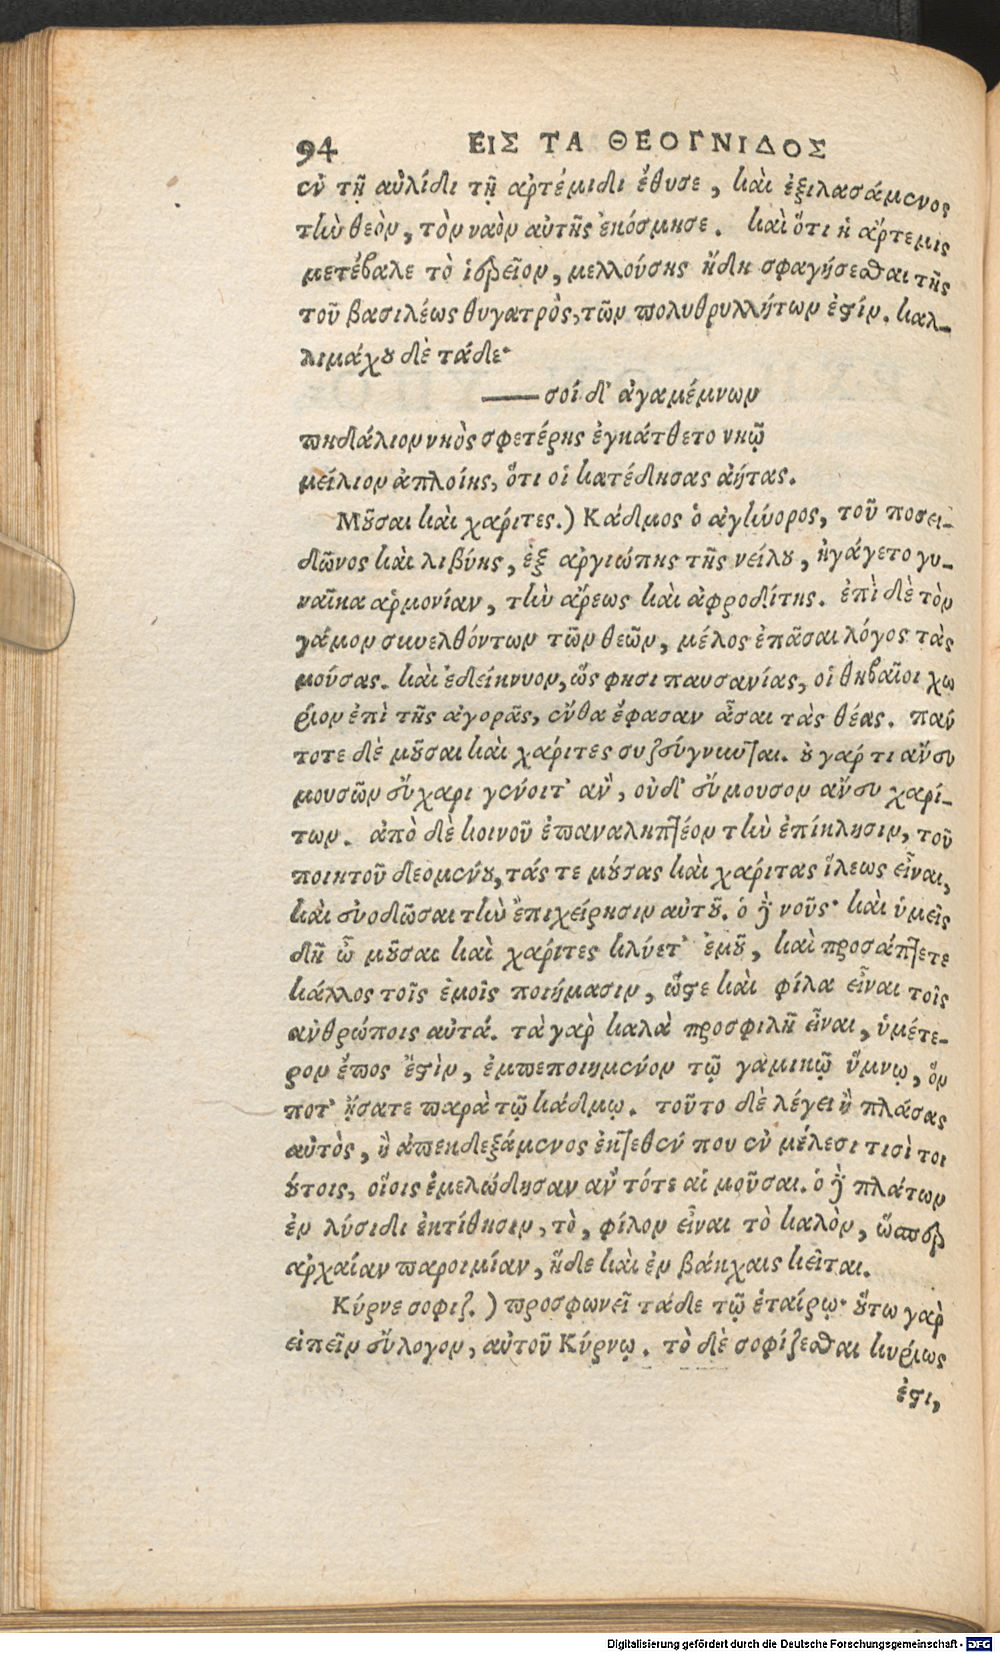 94 ΕΙΣ ΤΑ ΘΕΟΓΝΙΔΟΣ
ἐν τῇ αὐλίδι τῇ ἀρτέμιδι ἔθυσε, καὶ ἐξιλασάμενος
τὴν θεὸν, τὸν ναὸν αὐτῆς ἐκόσμησε. καὶ ὅτι ἡ ἄρτεμις
μετέβαλε τὸ ἱερεῖον, μελλούσης ἤδη σφαγήσεσθαι τῆς
τοῦ βασιλέως θυγατρὸς, τῶν πολυθρυλλήτων ἐστίν. καλ-
λιμάχου δὲ τάδε·
—— σοί δ' ἀγαμέμνων
πηδάλιον νηὸς σφετέρης ἐγκάτθετο νηῷ
μείλιον ἀπλοίης, ὅτι οἱ κατέδησας ἀήτας.
Μοῦσαι καὶ χάριτες.) Κάδμος ὁ ἀγήνορος, τοῦ ποσει-
δῶνος καὶ λιβύης, ἐξ ἀργιώπης τῆς νείλου, ἠγάγετο γυ-
ναῖκα ἁρμονίαν, τὴν ἄρεως καὶ ἀφροδίτης. ἐπὶ δὲ τὸν
γάμον συνελθόντων τῶν θεῶν, μέλος ἐπᾶσαι λόγος τὰς
μούσας. καὶ ἐδείκνυον, ὥς φησι παυσανίας, οἱ θηβαῖοι χω
ρίον ἐπὶ τῆς ἀγορᾶς, ἔνθα ἔφασαν ἆσαι τὰς θέας. πάν
τοτε δὲ μοῦσαι καὶ χάριτες συζεύγνυνται. οὐ γάρ τι ἄνευ
μουσῶν εὔχαρι γένοιτ' ἂν, οὐδ' εὔμουσον ἄνευ χαρί-
των. ἀπὸ δὲ κοινοῦ ἐπαναληπτέον τὴν ἐπίκλησιν, τοῦ
ποιητοῦ δεομένου, τάς τε μούσας καὶ χάριτας ἵλεως εἶναι,
καὶ εὐοδῶσαι τὴν ἐπιχείρησιν αὐτοῦ. ὁ δὲ νοῦς· καὶ ὑμεῖς
δὴ ὦ μοῦσαι καὶ χάριτες κλύετ' ἐμοῦ, καὶ προσάπτετε
κάλλος τοῖς ἐμοῖς ποιήμασιν, ὥστε καὶ φίλα εἶναι τοῖς
ἀνθρώποις αὐτά. τὰ γὰρ καλὰ προσφιλῆ εἶναι, ὑμέτε-
ρον ἔπος ἐστὶν, ἐμπεποιημένον τῷ γαμικῷ ὕμνῳ, ὃν
ποτ' ᾔσατε παρὰ τῷ κάδμῳ. τοῦτο δὲ λέγει ἢ πλάσας
αὐτὸς, ἢ ἀπεκδεξάμενος ἐκτεθέν που ἐν μέλεσι τισὶ τοι
ούτοις, οἵοις ἐμελώδησαν ἂν τότε αἱ μοῦσαι. ὁ δὲ πλάτων
ἐν λύσιδι ἐκτίθησιν, τὸ, φίλον εἶναι τὸ καλὸν, ὥσπερ
ἀρχαίαν παροιμίαν, ἥδε καὶ ἐν βάκχαις κεῖται.
Κύρνε σοφιζ.) προσφωνεῖ τάδε τῷ ἑταίρῳ· οὕτω γὰρ
εἰπεῖν εὔλογον, αὐτοῦ Κύρνῳ. τὸ δὲ σοφίζεσθαι κυρίως
ἐστι,
Digitalisierung gefördert durch die Deutsche Forschungsgemeinschaft - DFG